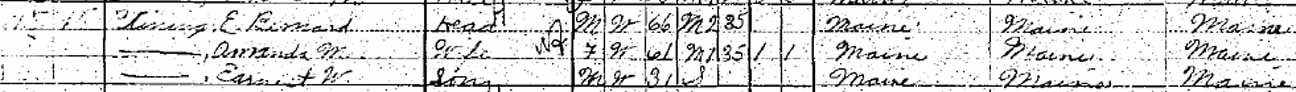 E. Bernard Head M W 66 M2 35 Maine Maine Maine
———, Amanda M. Wife F W 61 M1 35 1 1 Maine Maine Maine
———, Earnest W. Son M W 31 S Maine Maine Maine